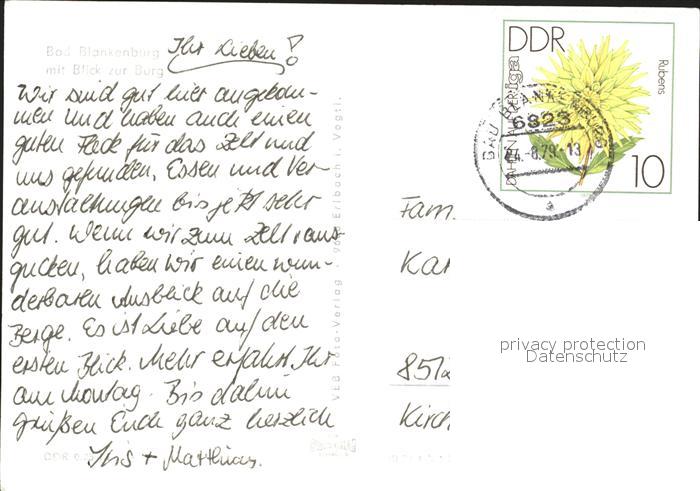 Bad Blankenburg
mit Blick zur Burg
Ihr Lieben!
Wir sind gut hier angekom-
men und haben auch einen
guten Fleck für das Zelt und
uns gefunden. Essen und Ver-
anstaltungen bis jetzt sehr
gut. Wenn wir zum Zelt raus-
gucken, haben wir einen wun-
derbaren Ausblick auf die
Berge. Es ist Liebe auf den
ersten Blick. Mehr erfahrt Ihr
am Montag. Bis dahin
grüßen Euch ganz herzlich
Iris + Matthias.
VEB Foto-Verlag · Erlbach i. Vogtl.
DDR
Rubens
10
6823
-8.79-13
a
Fam.
Kar
Kirch
privacy protection
Datenschutz